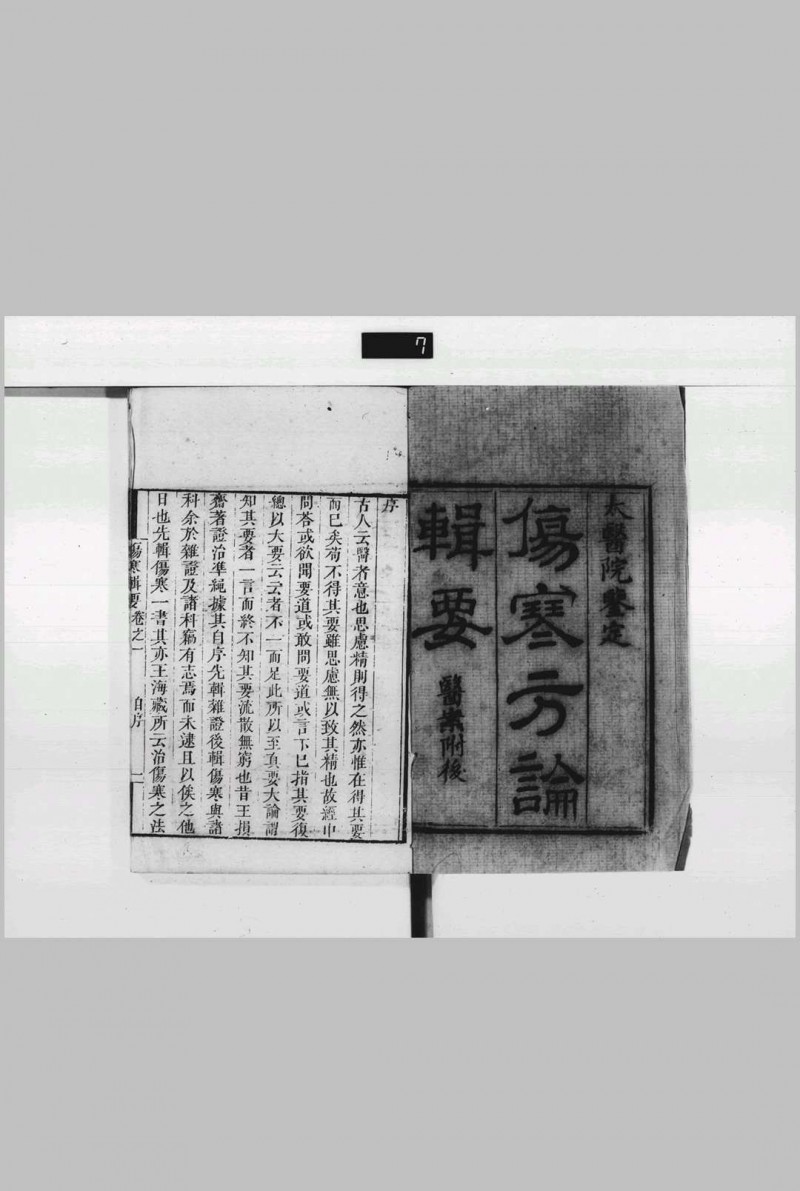 7
太醫院鑒定
傷寒方論
輯要
醫案附後
序
古人云醫者意也思慮精則得之然亦惟在得其要
而已矣苟不得其要雖思慮無以致其精也故經中
問答或欲聞要道或敢問要道或言下已指其要復
總以大要云云者不一而足此所以至真要大論謂
知其要者一言而終不知其要流散無窮也昔王損
齋著證治準繩據其自序先輯雜證後輯傷寒與諸
科余於雜證及諸科竊有志焉而未逮且以俟之他
日也先輯傷寒一書其亦王海藏所云治傷寒之法
傷寒輯要卷之一 自序 一